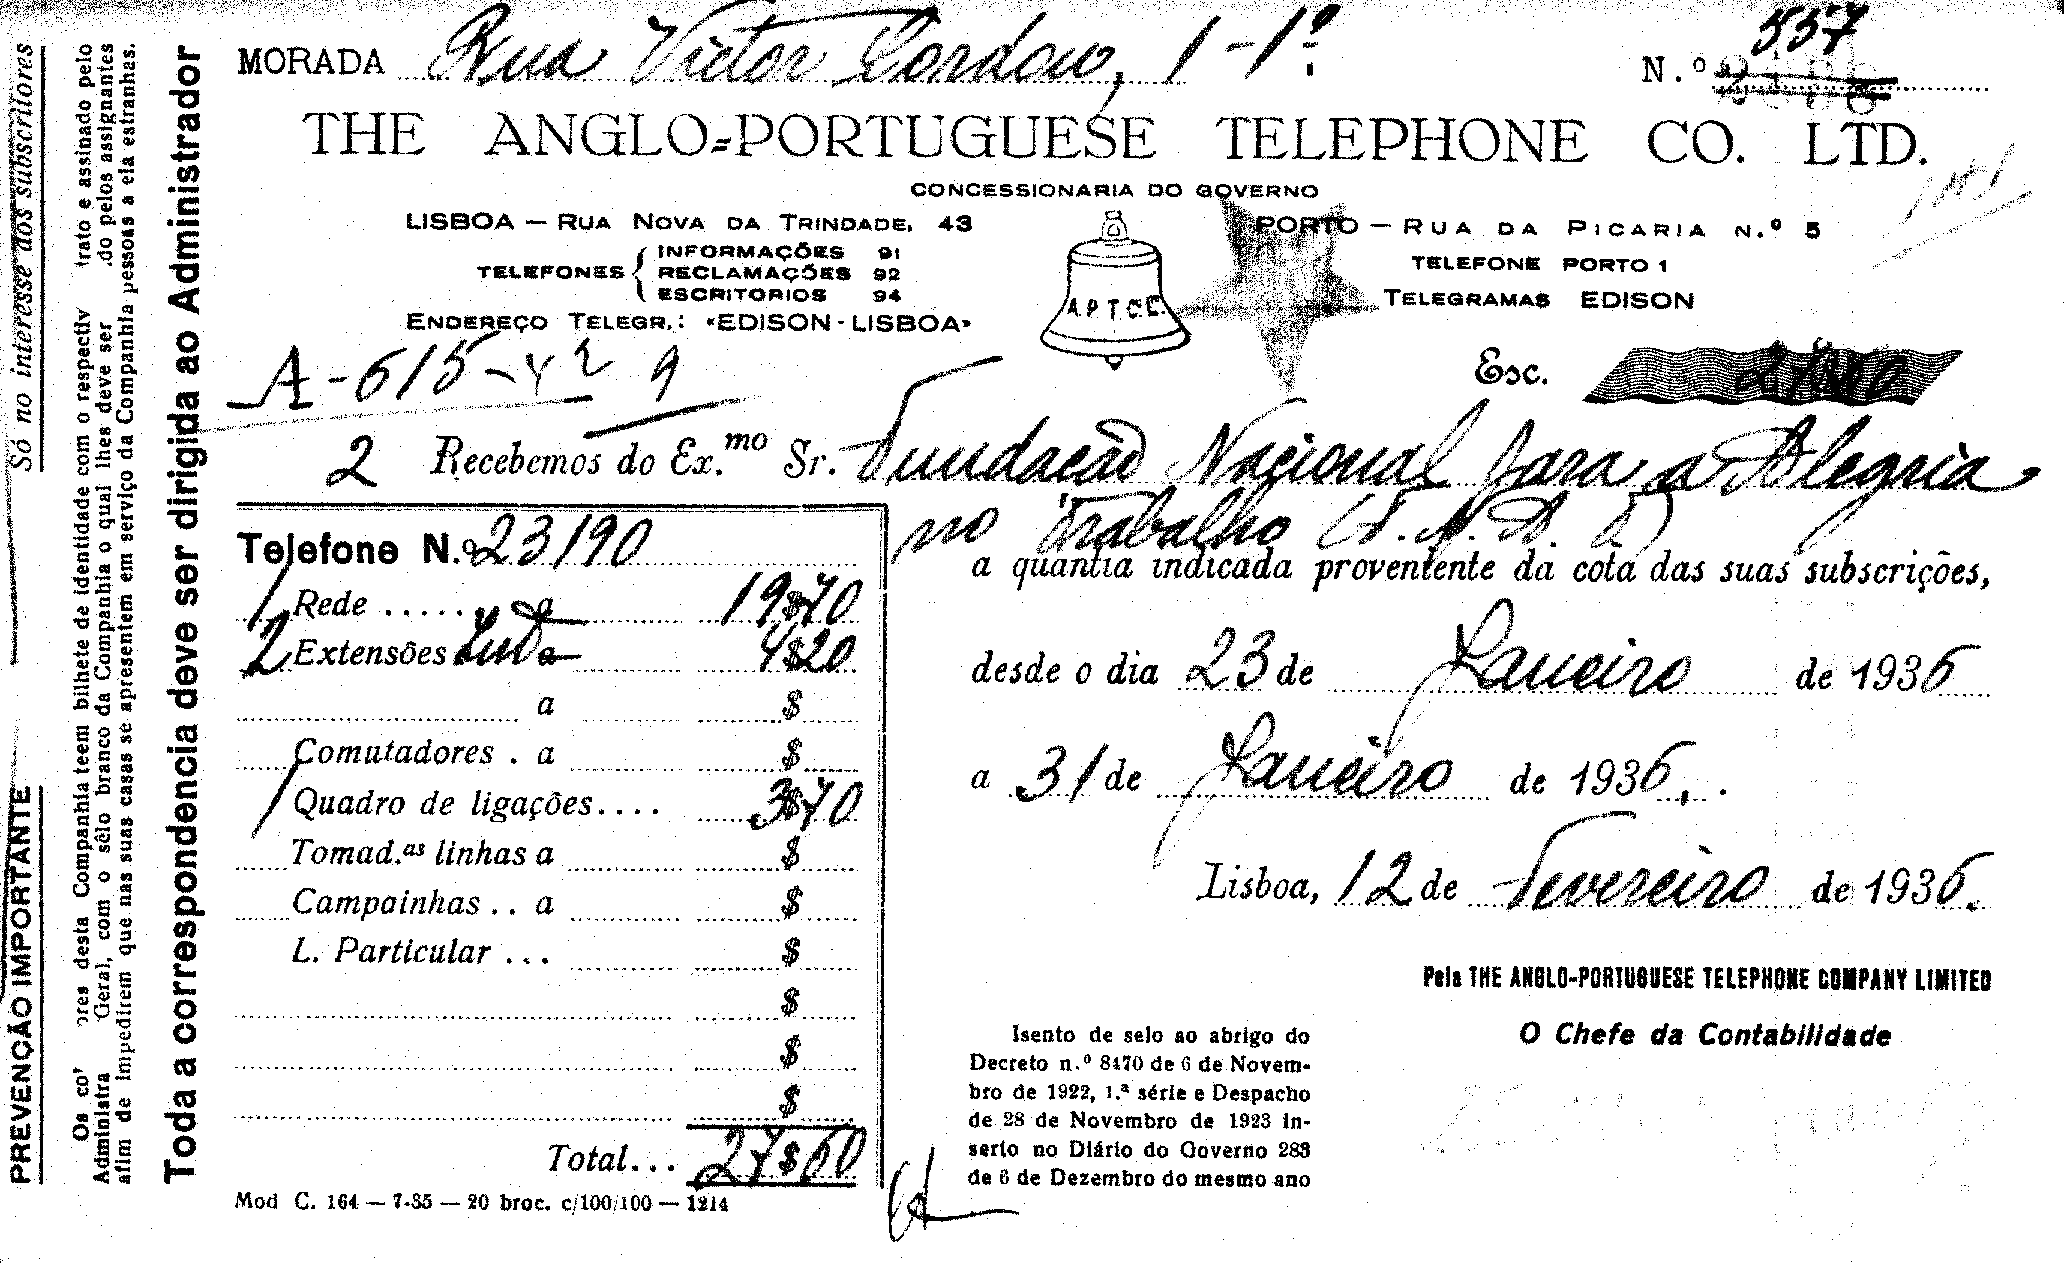 MORADA Rua Victor Cordon, 1-1º
N.º 557
THE ANGLO=PORTUGUESE TELEPHONE CO. LTD.
CONCESSIONARIA DO GOVERNO
LISBOA — RUA NOVA DA TRINDADE, 43
TELEFONES { INFORMAÇÕES 91
RECLAMAÇÕES 92
ESCRITORIOS 94
ENDEREÇO TELEGR.: «EDISON-LISBOA»
A.P.T.C.L.
PORTO — RUA DA PICARIA N.º 5
TELEFONE PORTO 1
TELEGRAMAS EDISON
A-615-
Esc.
2 Recebemos do Ex.mo Sr. Fundação Nacional para a Alegria
no Trabalho (F. N. A. T.)
a quantia indicada proveniente da cota das suas subscrições,
desde o dia 23 de Janeiro de 1936
a 31 de Janeiro de 1936.
Lisboa, 12 de Fevereiro de 1936.
Pela THE ANGLO-PORTUGUESE TELEPHONE COMPANY LIMITED
O Chefe da Contabilidade
Telefone N.º 23190
1 Rede ...... a 19$70
2 Extensões a 4$20
a $
Comutadores . a $
1 Quadro de ligações.... 3$70
Tomad.as linhas a $
Campainhas .. a $
L. Particular ... $
$
$
$
Total... 27$60
Mod C. 164 — 7-35 — 20 broc. c/100/100 — 1214
Isento de selo ao abrigo do
Decreto n.º 8470 de 6 de Novem-
bro de 1922, 1.ª série e Despacho
de 28 de Novembro de 1923 in-
serto no Diário do Governo 283
de 6 de Dezembro do mesmo ano
PREVENÇÃO IMPORTANTE Só no interesse dos subscritores
Os desta Companhia teem bilhete de identidade com o respectiv trato e assinado pelo
Administra Geral, com o sêlo branco da Companhia o qual lhes deve ser do pelos assignantes
afim de impedirem que nas suas casas se apresentem em serviço da Companhia pessoas a ela estranhas.
Toda a correspondencia deve ser dirigida ao Administrador